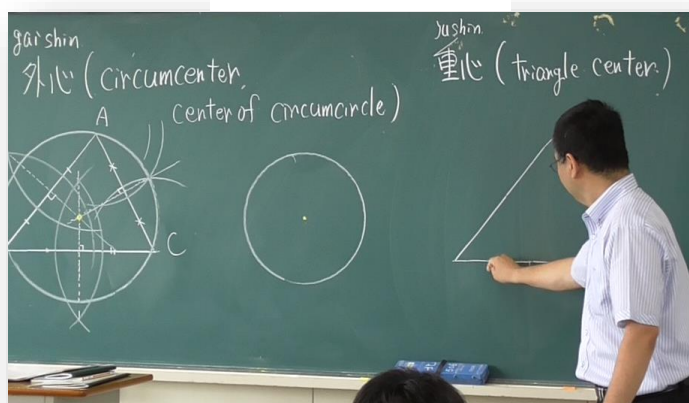 gaishin
外心 (circumcenter,
center of circumcircle)
A
C
jushin
重心 (triangle center.)